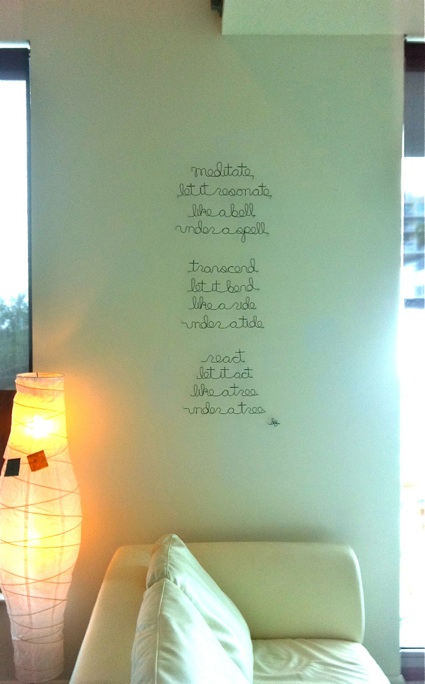 meditate,
let it resonate,
like a bell
under a spell,
transcend
let it bend
like a ride
under a tide
react
let it act
like a tree
under a tree